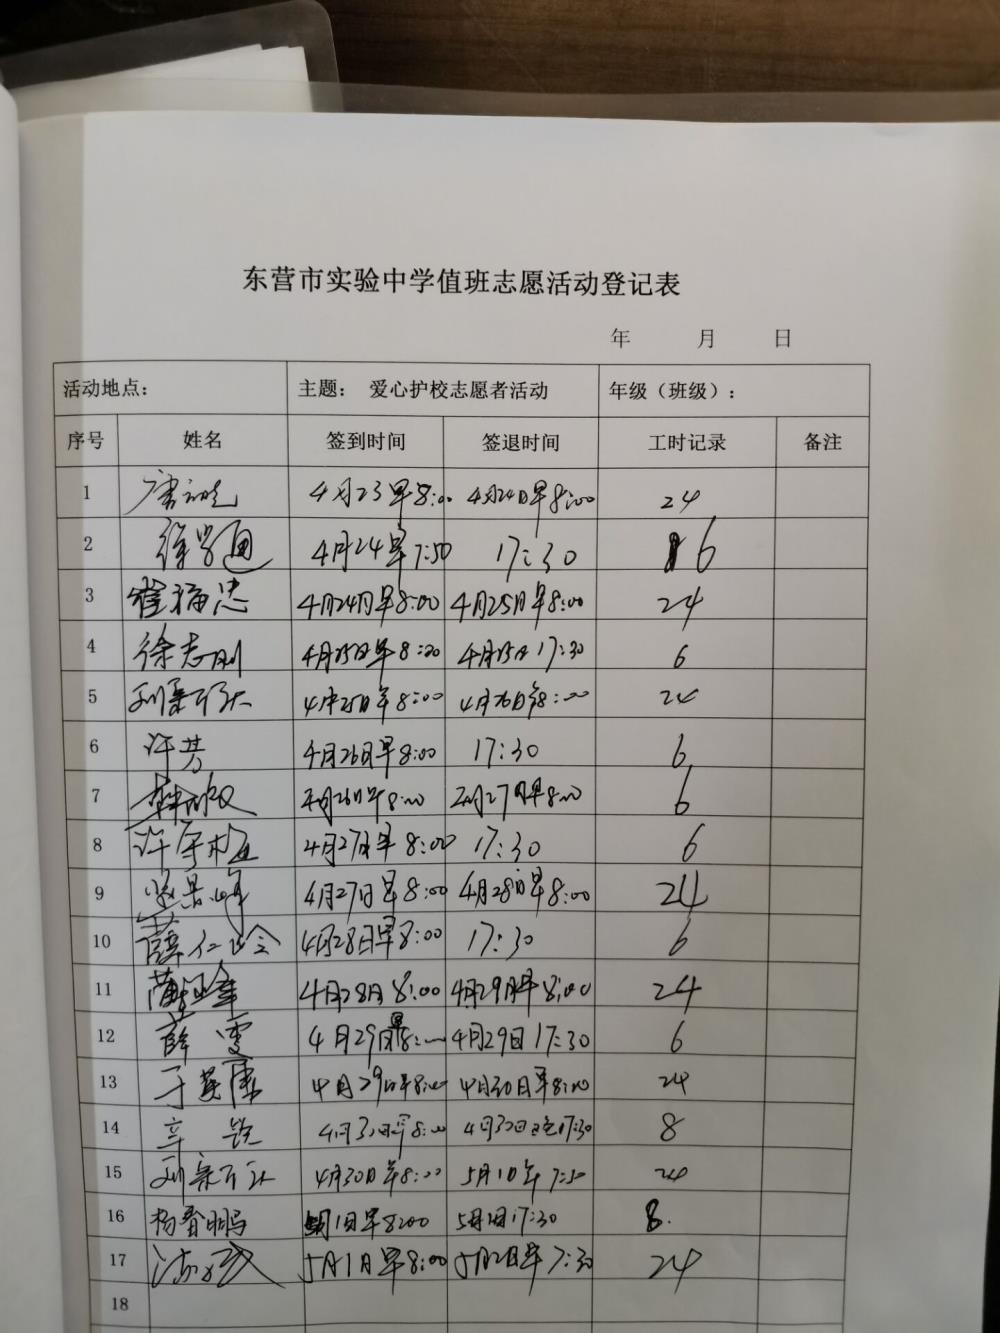 东营市实验中学值班志愿活动登记表
年 月 日
活动地点： 主题： 爱心护校志愿者活动 年级（班级）：
序号 姓名 签到时间 签退时间 工时记录 备注
1 4月23早8:00 4月24日早8:00 24
2 4月24早7:50 17:30 6
3 崔福忠 4月24日早8:00 4月25日早8:00 24
4 徐志刚 4月25日早8:00 4月25日17:30 6
5 4月25日早8:00 4月26日早8:00 24
6 许芳 4月26日早8:00 17:30 6
7 4月26日早8:00 4月27日早8:00 6
8 4月27日早8:00 17:30 6
9 4月27日早8:00 4月28日早8:00 24
10 薛仁 4月28日早8:00 17:30 6
11 4月28日8:00 4月29日早8:00 24
12 薛雯 4月29日早8:00 4月29日17:30 6
13 4月29日早8:00 4月30日早8:00 24
14 辛锐 4月30日早8:00 4月30日 17:30 8
15 4月30日早8:00 5月1日早7:50 24
16 杨春鹏 1日早8:00 5月 17:30 8.
17 5月1日早8:00 5月2日早7:30 24
18